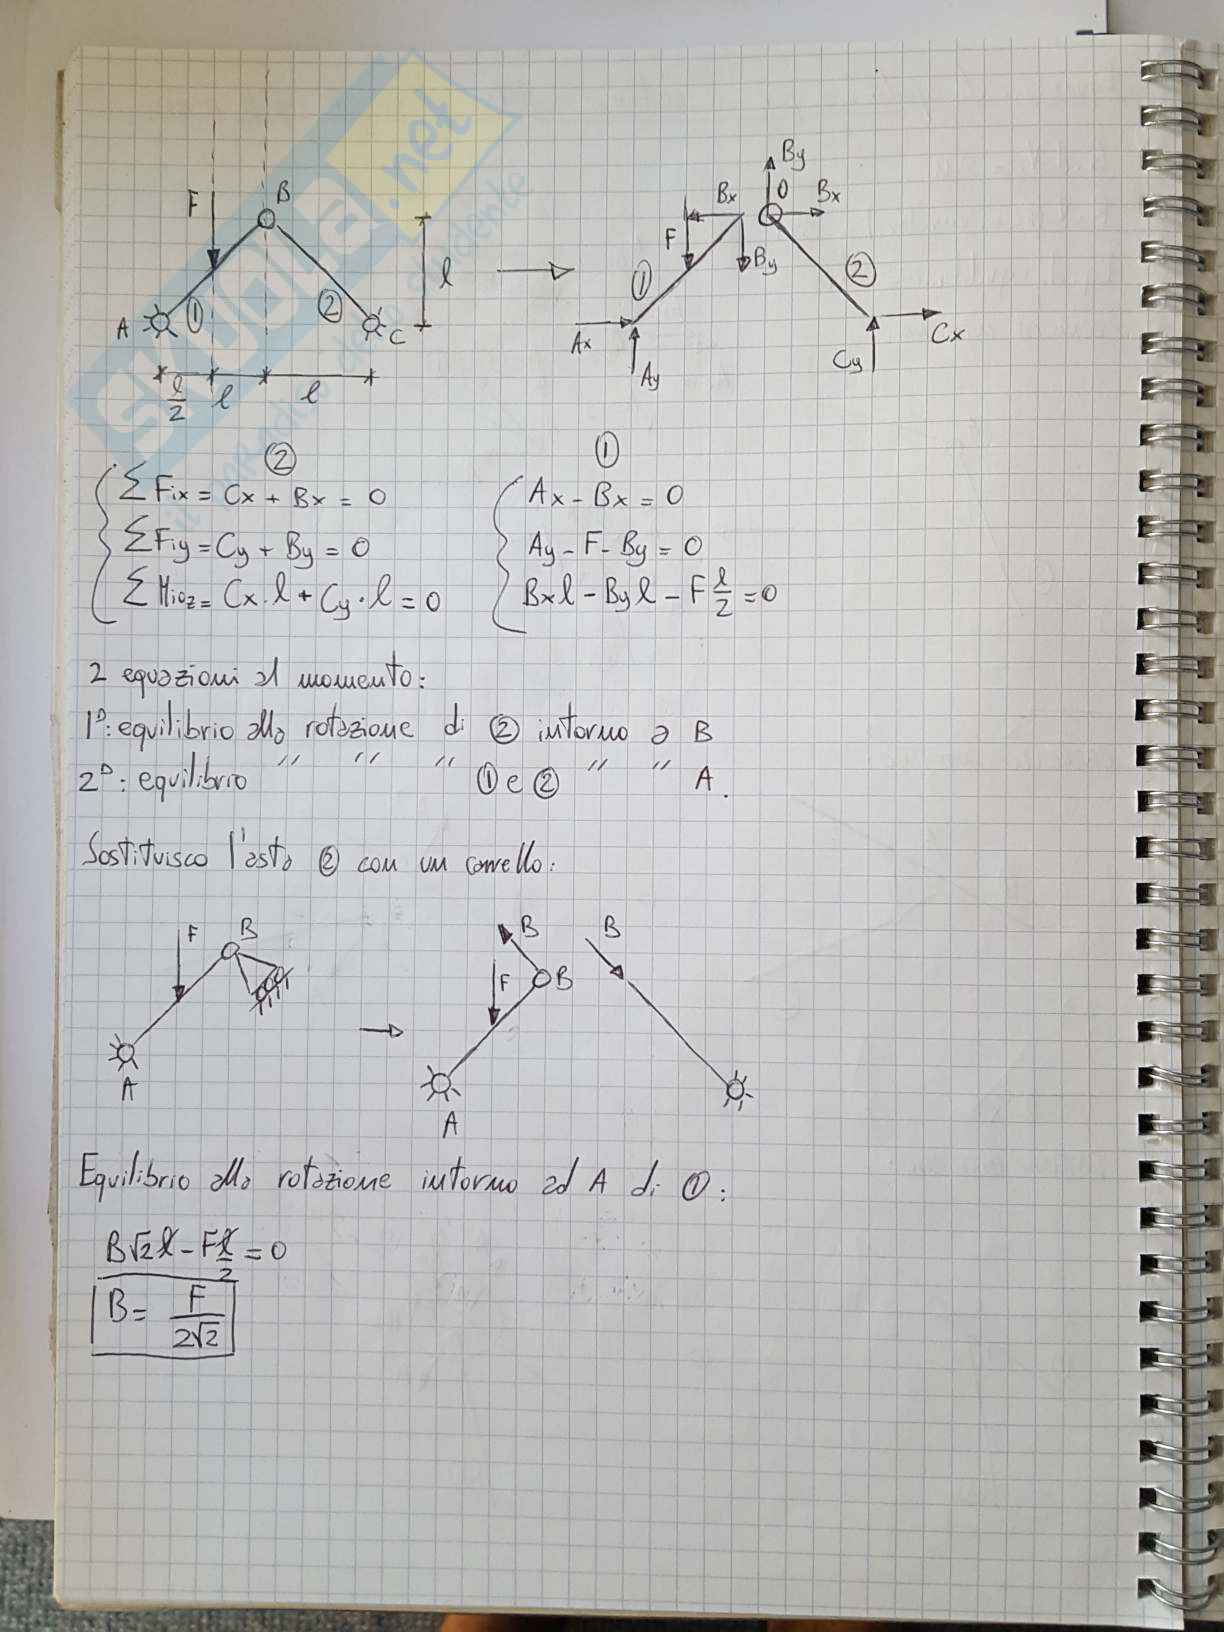 F
B
A
C
①
②
l
l/2
l
l
Bx
By
O
Bx
F
By
①
②
Ax
Ay
Cy
Cx
②
①
ΣFix = Cx + Bx = 0
ΣFiy = Cy + By = 0
ΣMioz = Cx · l + Cy · l = 0
Ax - Bx = 0
Ay - F - By = 0
Bxl - Byl - F l/2 = 0
2 equazioni al momento:
1ᵃ: equilibrio alla rotazione di ② intorno a B
2ᵃ: equilibrio " " " ① e ② " " A.
Sostituisco l'asta ② con un carrello:
F
B
A
B
F
B
A
B
Equilibrio alla rotazione intorno ad A di ①:
B√2 l - F l/2 = 0
B = F/2√2
skuola.net